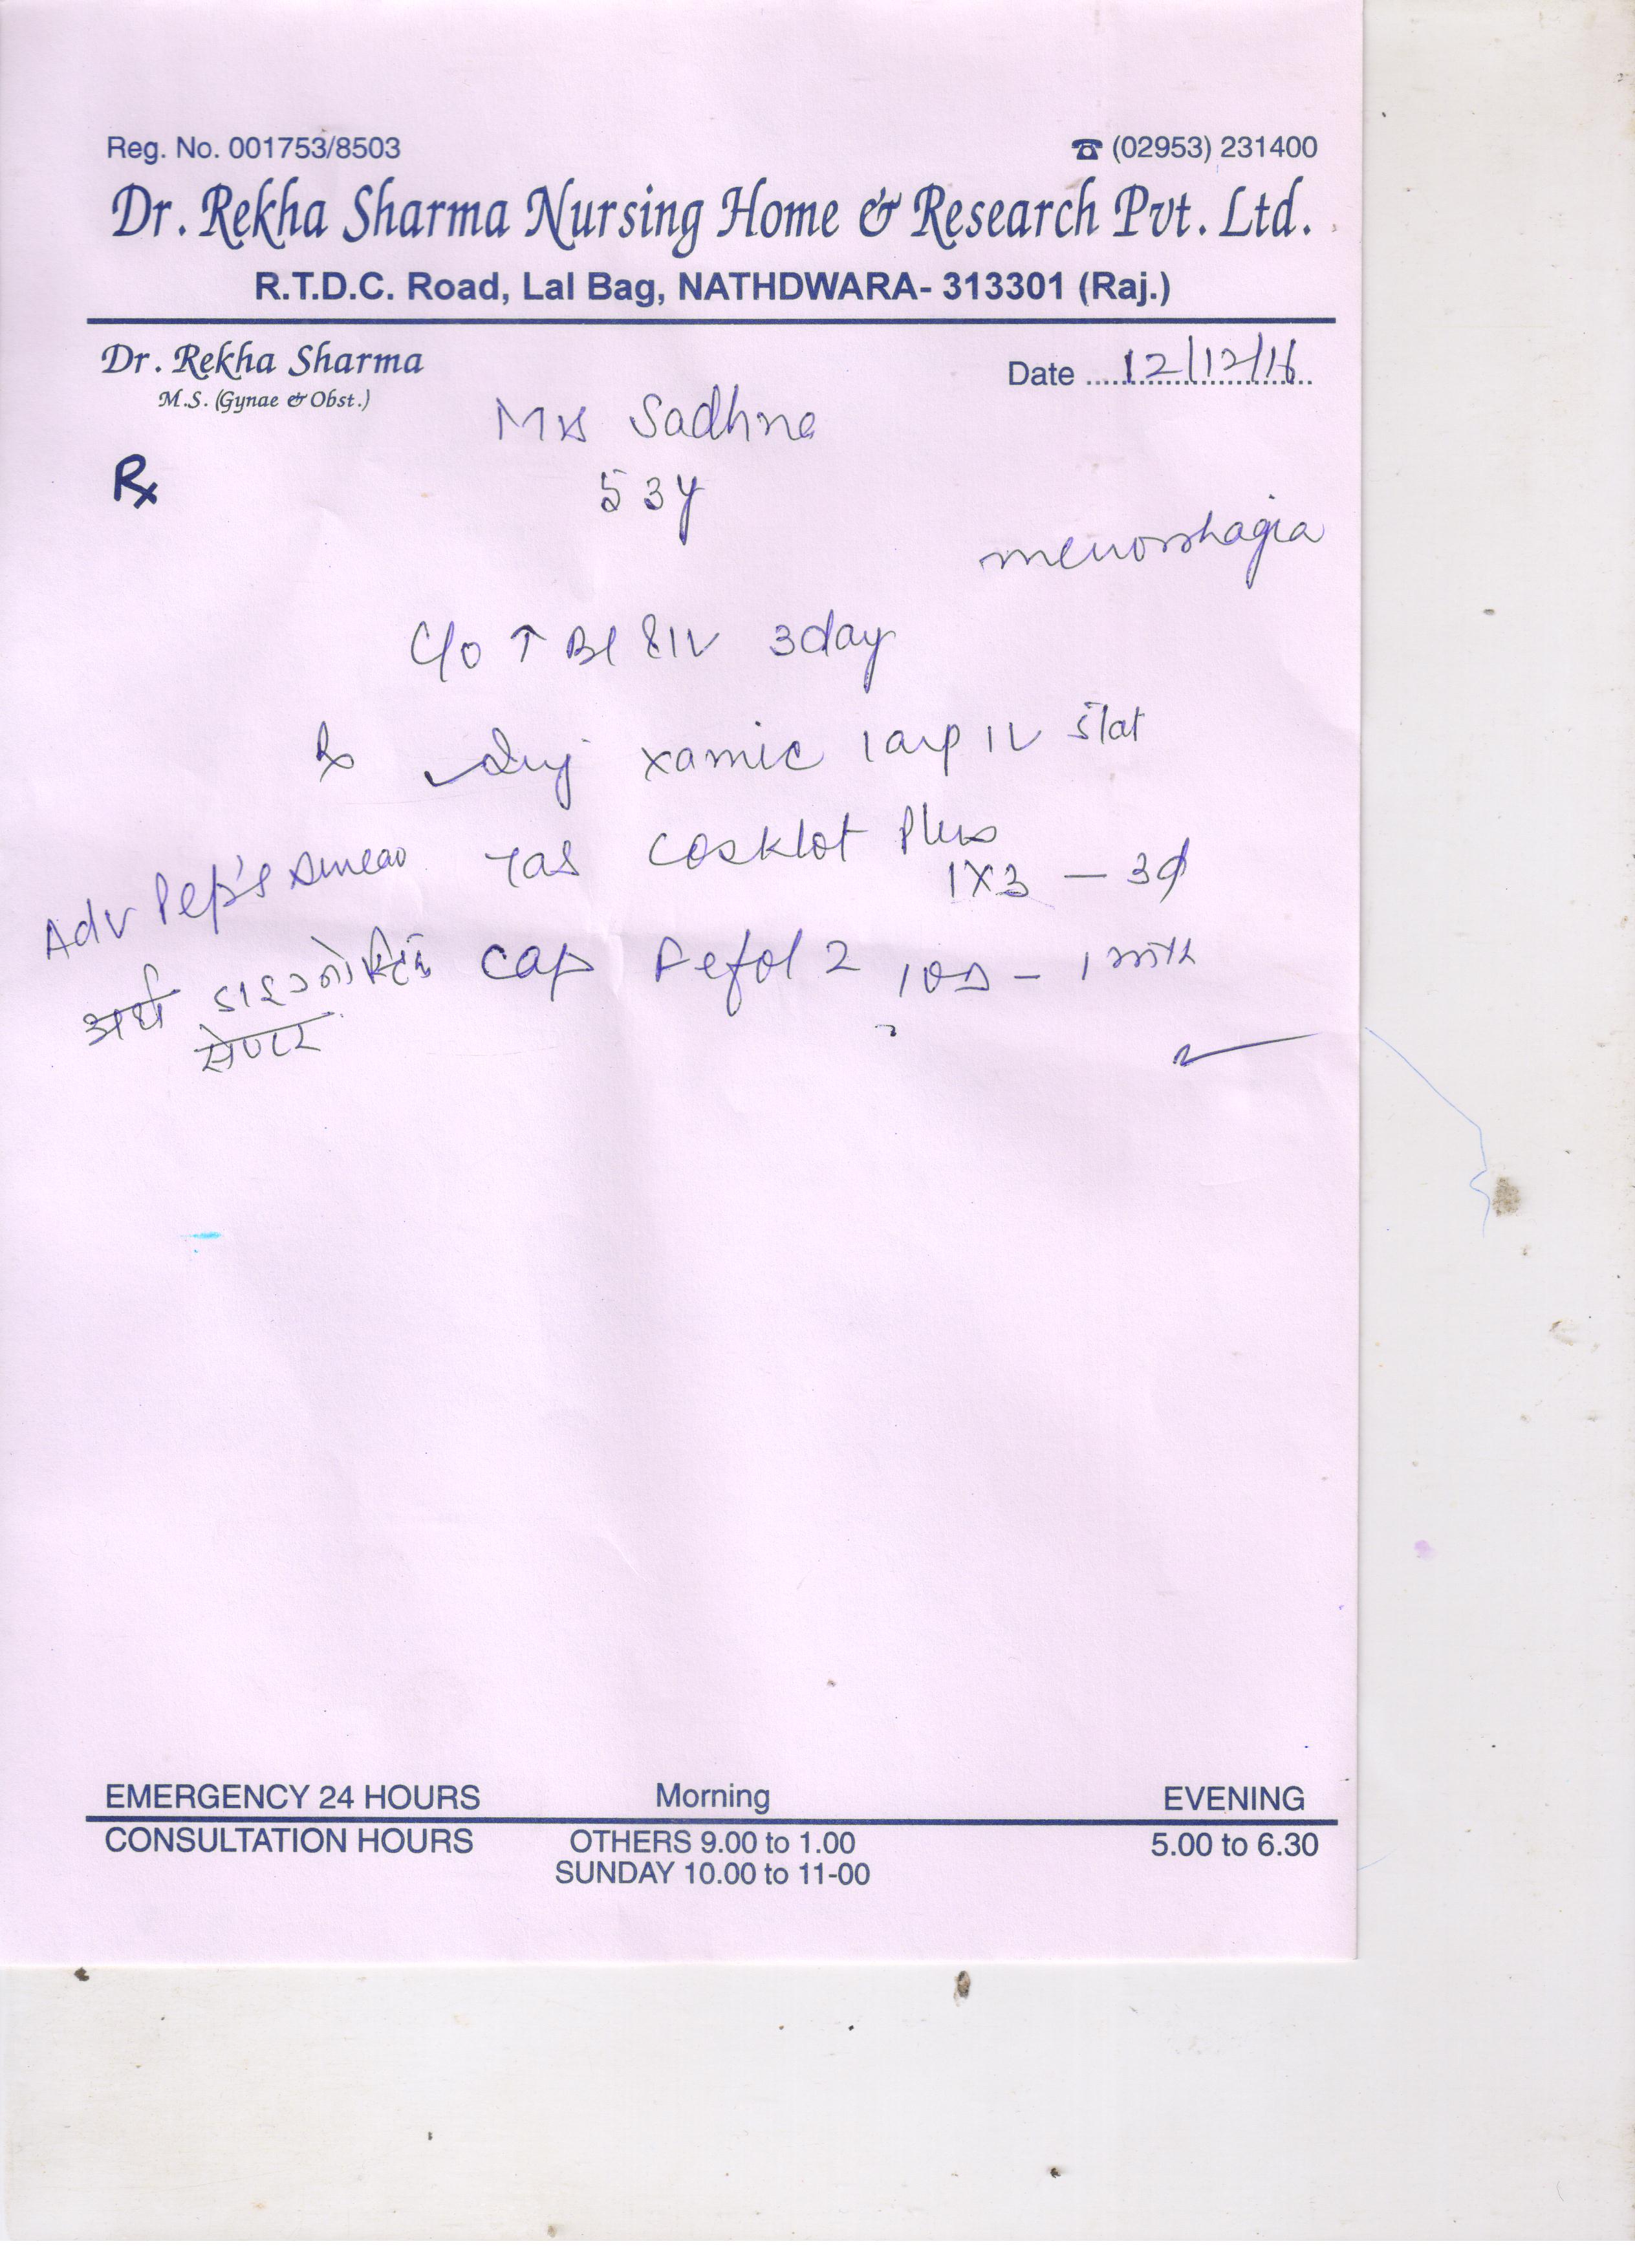 Reg. No. 001753/8503
☎ (02953) 231400
Dr. Rekha Sharma Nursing Home & Research Pvt. Ltd.
R.T.D.C. Road, Lal Bag, NATHDWARA- 313301 (Raj.)
Dr. Rekha Sharma
M.S. (Gynae & Obst.)
Date 12/12/16
Mrs Sadhna
Rx
53y
menorrhagia
C/o ↑ Bl P/V 3day
Rx Inj xamic 1 amp IV stat
Tab Cosklot Plus
1X3 — 3d
Adv Pep's smear
Cap Fefol Z 1OD – 1 mth
अर्थ डाइग्नोस्टिक
सेण्टर
EMERGENCY 24 HOURS
Morning
EVENING
CONSULTATION HOURS
OTHERS 9.00 to 1.00
5.00 to 6.30
SUNDAY 10.00 to 11-00